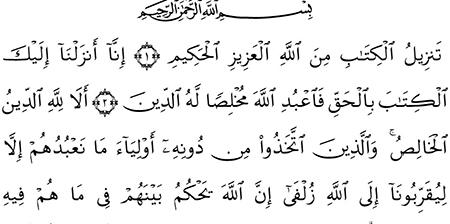 بِسْمِ اللَّهِ الرَّحْمَٰنِ الرَّحِيمِ
تَنزِيلُ الْكِتَابِ مِنَ اللَّهِ الْعَزِيزِ الْحَكِيمِ ﴿١﴾ إِنَّا أَنزَلْنَا إِلَيْكَ
الْكِتَابَ بِالْحَقِّ فَاعْبُدِ اللَّهَ مُخْلِصًا لَّهُ الدِّينَ ﴿٢﴾ أَلَا لِلَّهِ الدِّينُ
الْخَالِصُ ۚ وَالَّذِينَ اتَّخَذُوا مِن دُونِهِ أَوْلِيَاءَ مَا نَعْبُدُهُمْ إِلَّا
لِيُقَرِّبُونَا إِلَى اللَّهِ زُلْفَىٰ إِنَّ اللَّهَ يَحْكُمُ بَيْنَهُمْ فِي مَا هُمْ فِيهِ